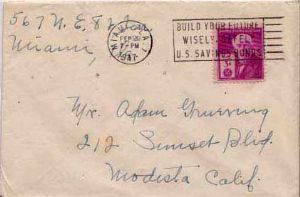 567 N.E. 82
Miami,
MIAMI, FLA.
FEB
7-PM
1947
BUILD YOUR FUTURE
WISELY-SAFELY
U.S. SAVINGS BONDS
3¢
Mr. Adam Gruening
212 Sunset Blvd.
Modesta Calif.